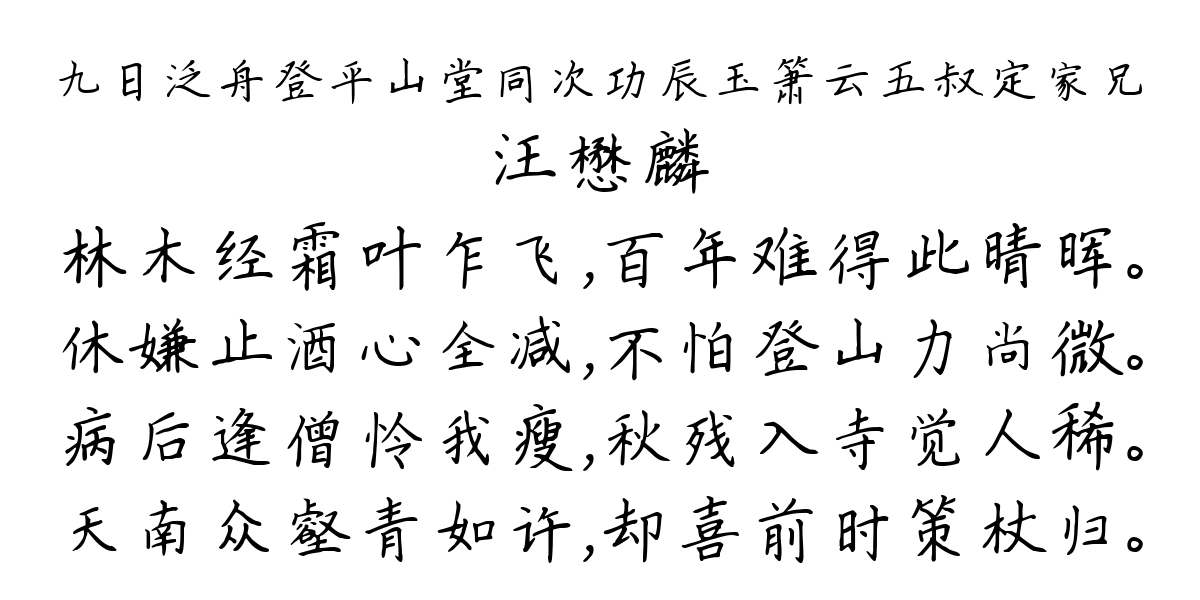 九日泛舟登平山堂同次功辰玉箫云五叔定家兄
汪懋麟
林木经霜叶乍飞,百年难得此晴晖。
休嫌止酒心全减,不怕登山力尚微。
病后逢僧怜我瘦,秋残入寺觉人稀。
天南众壑青如许,却喜前时策杖归。